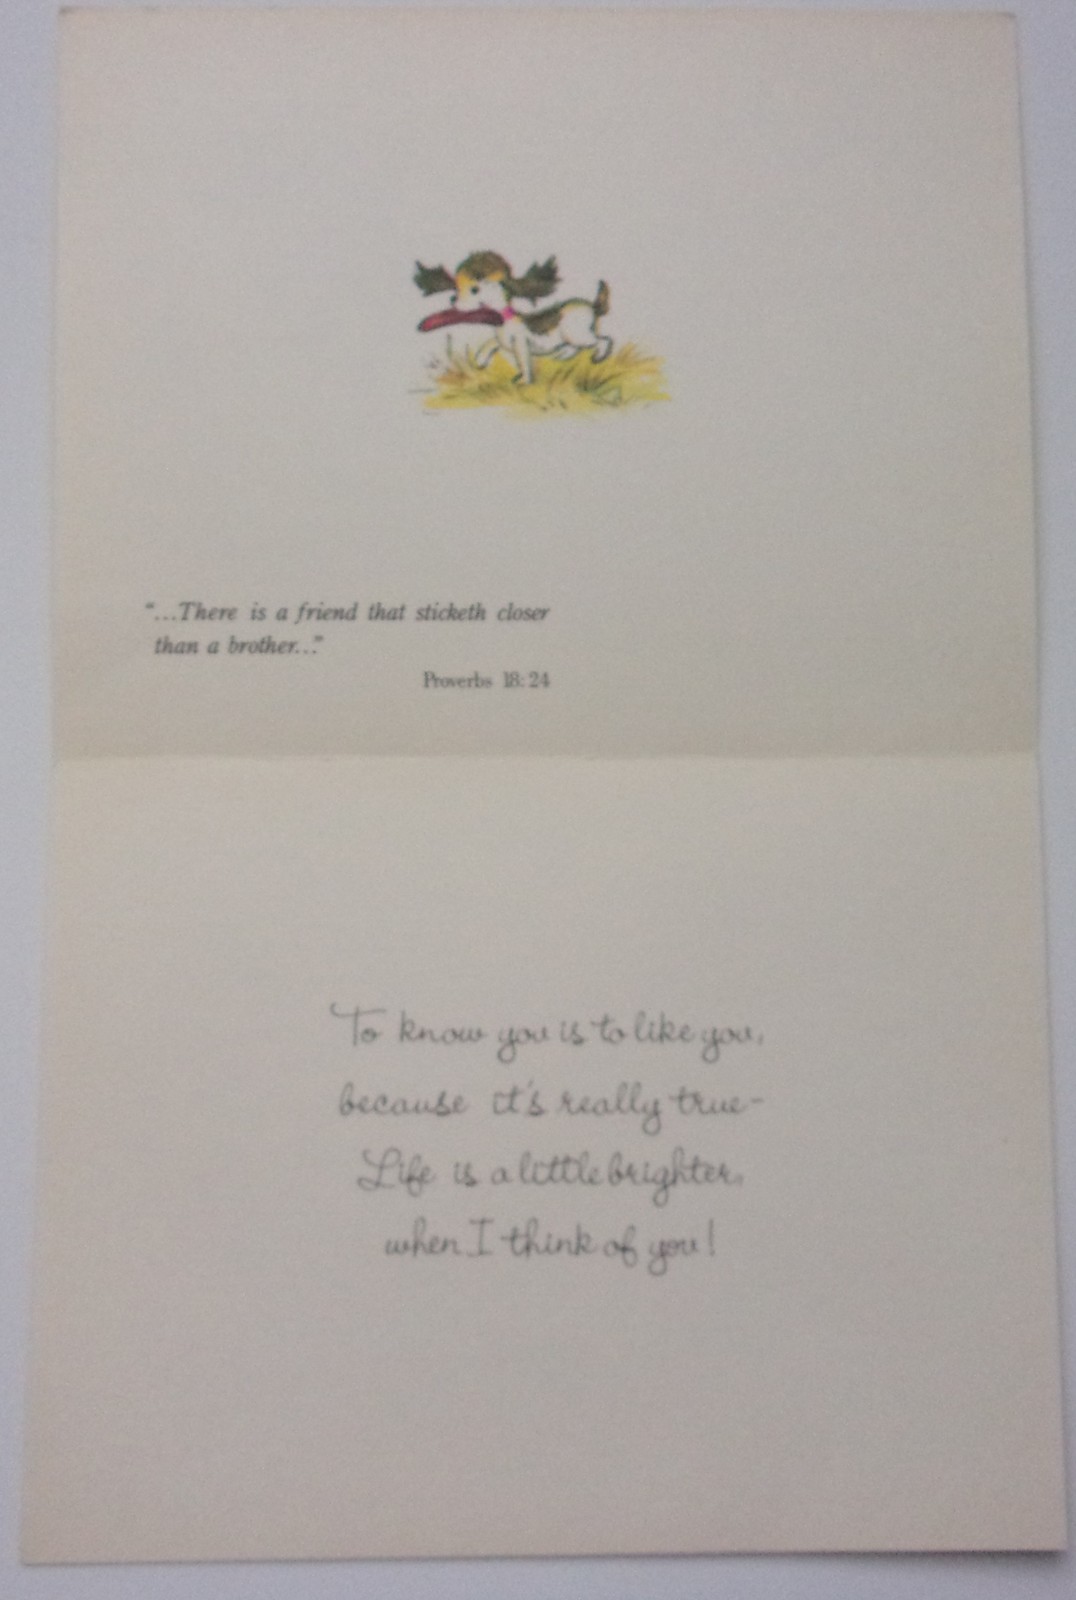 “...There is a friend that sticketh closer
than a brother...”
Proverbs 18:24
To know you is to like you,
because it's really true-
Life is a little brighter,
when I think of you!